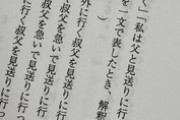 く」「私は父と見送りに行
を、一文で表したとき、解釈
）
外に行く叔父を見送りに行
叔父を急いで見送りに行っ
叔父を急いで見送りに行っ
行く叔父を見送りに行っ